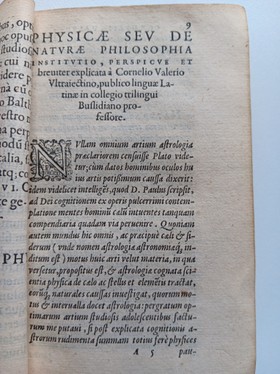 9
PHYSICÆ SEV DE
NATVRÆ PHILOSOPHIA
INSTITVTIO, PERSPICVE ET
breuiter explicata à Cornelio Valerio
Vltraiectino, publico linguæ La-
tinæ in collegio trilingui
Buslidiano pro-
fessore.
NVllam omnium artium astrologia
præclariorem censuisse Plato vide-
tur; cum datos hominibus oculos hu-
ius artis potissimum caussa dixerit:
idem videlicet intelligēs, quod D. Paulus scripsit,
ad Dei cognitionem ex operis pulcerrimi contem-
platione mentes hominū cæli intuentes tanquam
compendiaria quadam via peruenire. Quoniam
autem mundus hic omnis, ac præcipuè cæli & si-
derum (vnde nomen astrologiæ astronomiæq́; in-
ditum est) motus huic arti velut materia, in qua
versetur, propositus est, & astrologia cognata sciē-
tia physica de cælo ac stellis et elemētis tractat,
orūq́; naturales caussas inuestigat, quorum mo-
tus & interualla docet astrologia: pergratum op-
timarum artium studiosis adolescentibus factu-
rum me putaui, si post explicata cognitionis a-
strorum rudimenta summam totius ferè physices
A 5
pau-